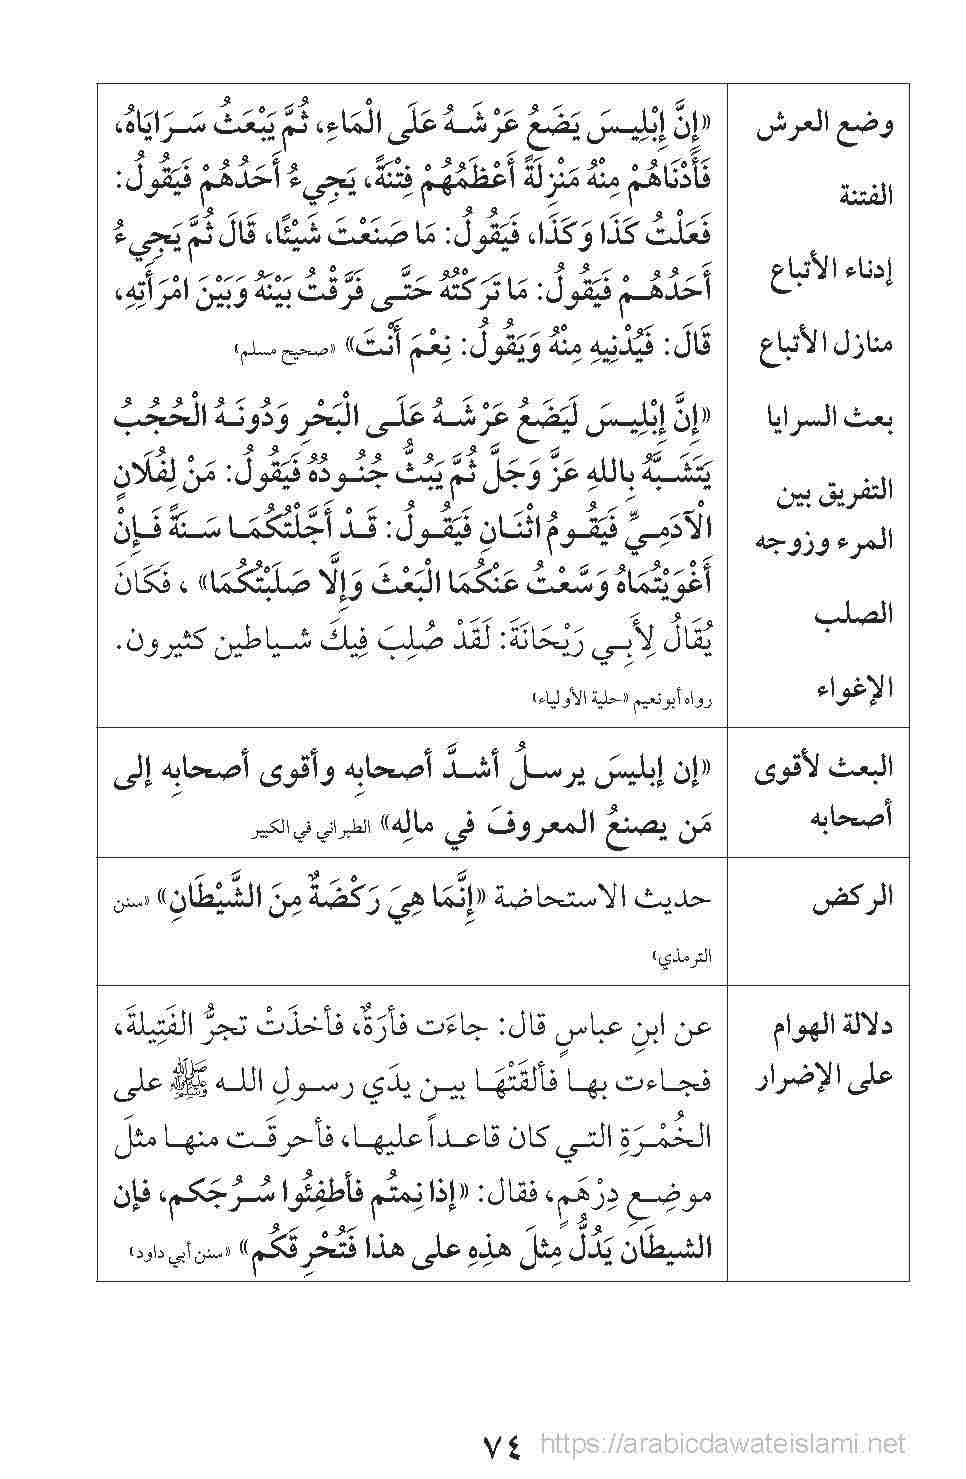 وضع العرش
الفتنة
إدناء الأتباع
منازل الأتباع
بعث السرايا
التفريق بين
المرء وزوجه
الصلب
الإغواء
«إِنَّ إِبْلِيسَ يَضَعُ عَرْشَهُ عَلَى الْمَاءِ، ثُمَّ يَبْعَثُ سَرَايَاهُ،
فَأَدْنَاهُمْ مِنْهُ مَنْزِلَةً أَعْظَمُهُمْ فِتْنَةً، يَجِيءُ أَحَدُهُمْ فَيَقُولُ:
فَعَلْتُ كَذَا وَكَذَا، فَيَقُولُ: مَا صَنَعْتَ شَيْئًا، قَالَ ثُمَّ يَجِيءُ
أَحَدُهُمْ فَيَقُولُ: مَا تَرَكْتُهُ حَتَّى فَرَّقْتُ بَيْنَهُ وَبَيْنَ امْرَأَتِهِ،
قَالَ: فَيُدْنِيهِ مِنْهُ وَيَقُولُ: نِعْمَ أَنْتَ» «صحيح مسلم»
«إِنَّ إِبْلِيسَ لَيَضَعُ عَرْشَهُ عَلَى الْبَحْرِ وَدُونَهُ الْحُجُبُ
يَتَشَبَّهُ بِاللهِ عَزَّ وَجَلَّ ثُمَّ يَبُثُّ جُنُودُهُ فَيَقُولُ: مَنْ لِفُلَانٍ
الْآدَمِيِّ فَيَقُومُ اثْنَانِ فَيَقُولُ: قَدْ أَجَّلْتُكُمَا سَنَةً فَإِنْ
أَغْوَيْتُمَاهُ وَسَّعْتُ عَنْكُمَا الْبَعْثَ وَإِلَّا صَلَبْتُكُمَا» ، فَكَانَ
يُقَالُ لِأَبِي رَيْحَانَةَ: لَقَدْ صُلِبَ فِيكَ شياطين كثيرون.
رواه أبو نعيم «حلية الأولياء»
البعث لأقوى
أصحابه
«إن إبليسَ يرسلُ أشدَّ أصحابِه وأقوى أصحابِه إلى
مَن يصنعُ المعروفَ في مالِه» الطبراني في الكبير
الركض
حديث الاستحاضة «إِنَّمَا هِيَ رَكْضَةٌ مِنَ الشَّيْطَانِ» «سنن
الترمذي»
دلالة الهوام
على الإضرار
عن ابنِ عباسٍ قال: جاءَت فأرَةٌ، فأخذَتْ تجرُّ الفَتِيلةَ،
فجاءت بها فألقَتْهَا بين يدَي رسولِ الله ﷺ على
الخُمْرَةِ التي كان قاعداً عليها، فأحرقَت منها مثلَ
موضِعِ دِرْهَمٍ، فقال: «إذا نِمتُم فأطفِئُوا سُرُجَكم، فإن
الشيطَان يَدُلُّ مِثلَ هذِهِ على هذا فَتُحْرِقَكُم» «سنن أبي داود»
٧٤
https://arabicdawateislami.net